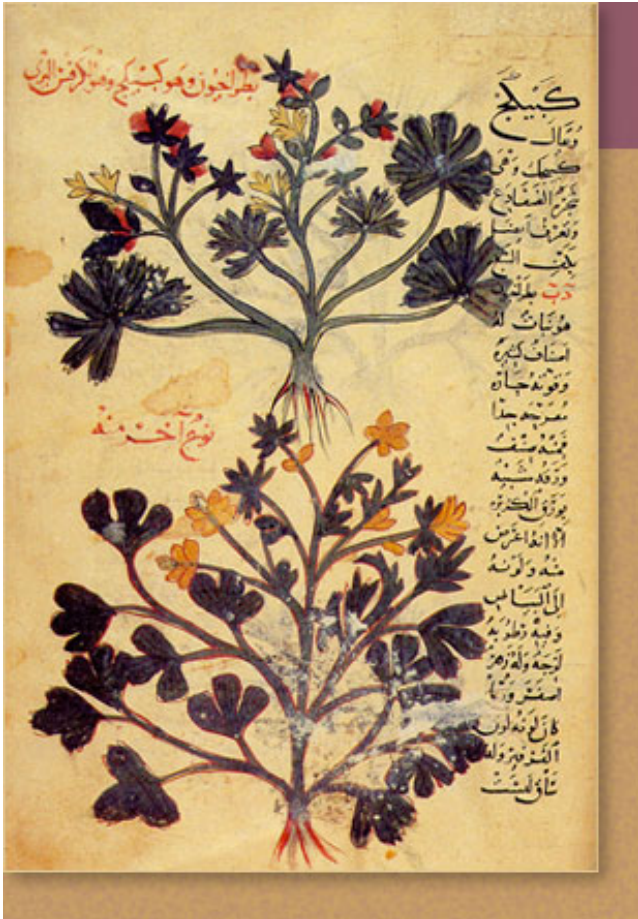 بطراخيون وهو كبيكج وهو كرفس البري
كبيكج
ويقال
كبيكك وهي
شجرة الضفادع
وتعرف ايضا
بكف
دب بطراخيون
هو نبات له
اصناف كثيرة
وقوته حادة
مقرحة جدا
فمنه صنف
ورقه شبيه
بورق الكزبره
الا انه اعرض
منه ولونه
الى البياض
وفيه رطوبة
لزجة وله زهر
اصفر وربما
كان لونه لون
الفرفير وله
ساق ليست
نوع اخر منه